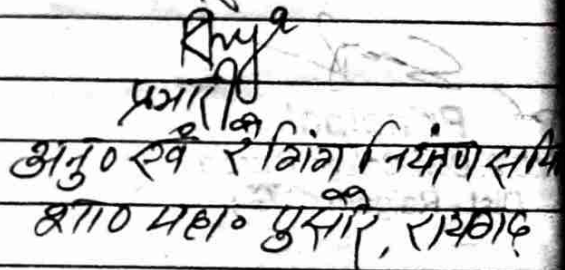 प्रभारी
अनु० एवं रैगिंग नियंत्रण समि
शा० महा० पुसौर, रायगढ़